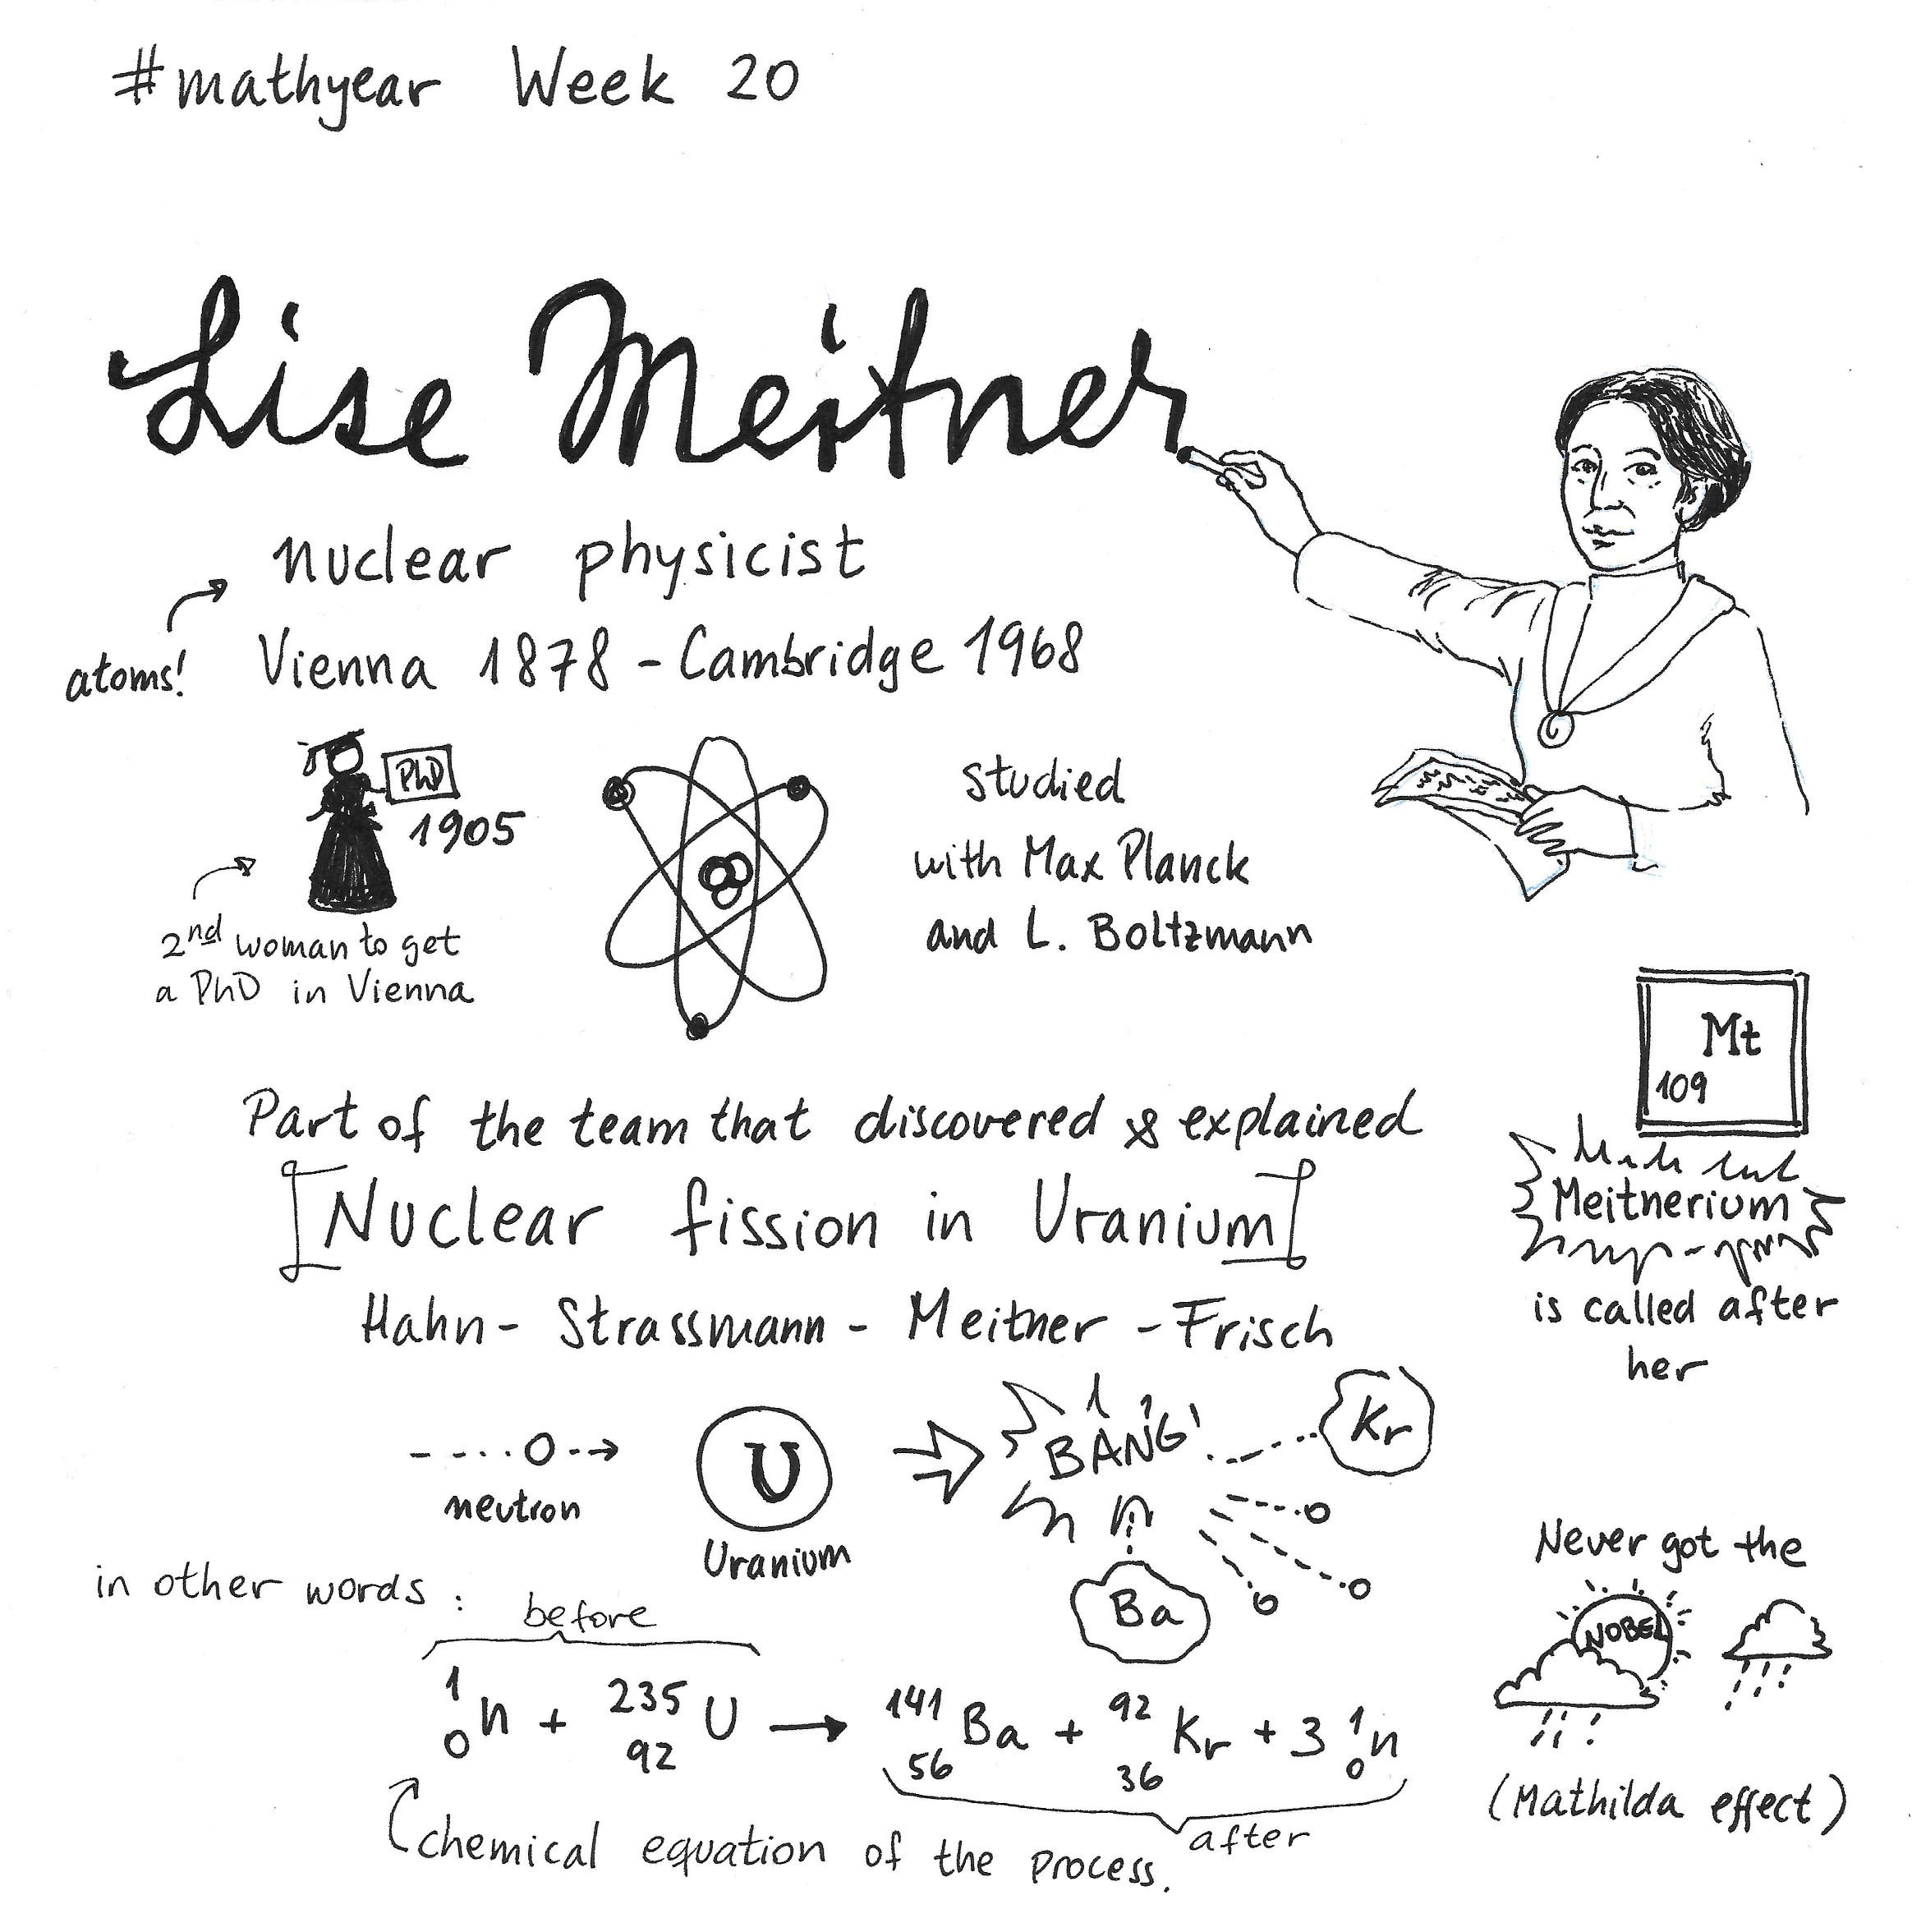 #mathyear Week 20
Lise Meitner
nuclear physicist
atoms!
Vienna 1878 - Cambridge 1968
PhD
1905
2nd woman to get
a PhD in Vienna
studied
with Max Planck
and L. Boltzmann
Mt
109
Meitnerium
is called after
her
Part of the team that discovered & explained
[Nuclear fission in Uranium]
Hahn - Strassmann - Meitner - Frisch
neutron
U
Uranium
BANG!
Kr
Ba
in other words:
before
¹₀n + ²³⁵₉₂U → ¹⁴¹₅₆Ba + ⁹²₃₆Kr + 3 ¹₀n
after
chemical equation of the process.
Never got the
NOBEL
(Mathilda effect)